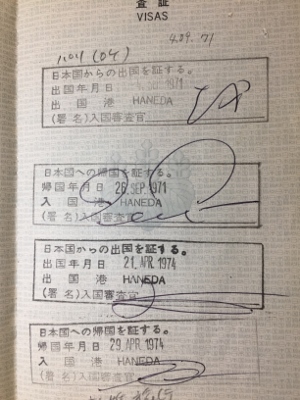 査証
VISAS
日本国からの出国を証する。
出国年月日
出国港 HANEDA
(署名)入国審査官
日本国への帰国を証する。
帰国年月日 26. SEP. 1971
入国港 HANEDA
(署名)入国審査官
日本国からの出国を証する。
出国年月日 21. APR. 1974
出国港 HANEDA
(署名)入国審査官
日本国への帰国を証する。
帰国年月日 29. APR. 1974
入国港 HANEDA
(署名)入国審査官